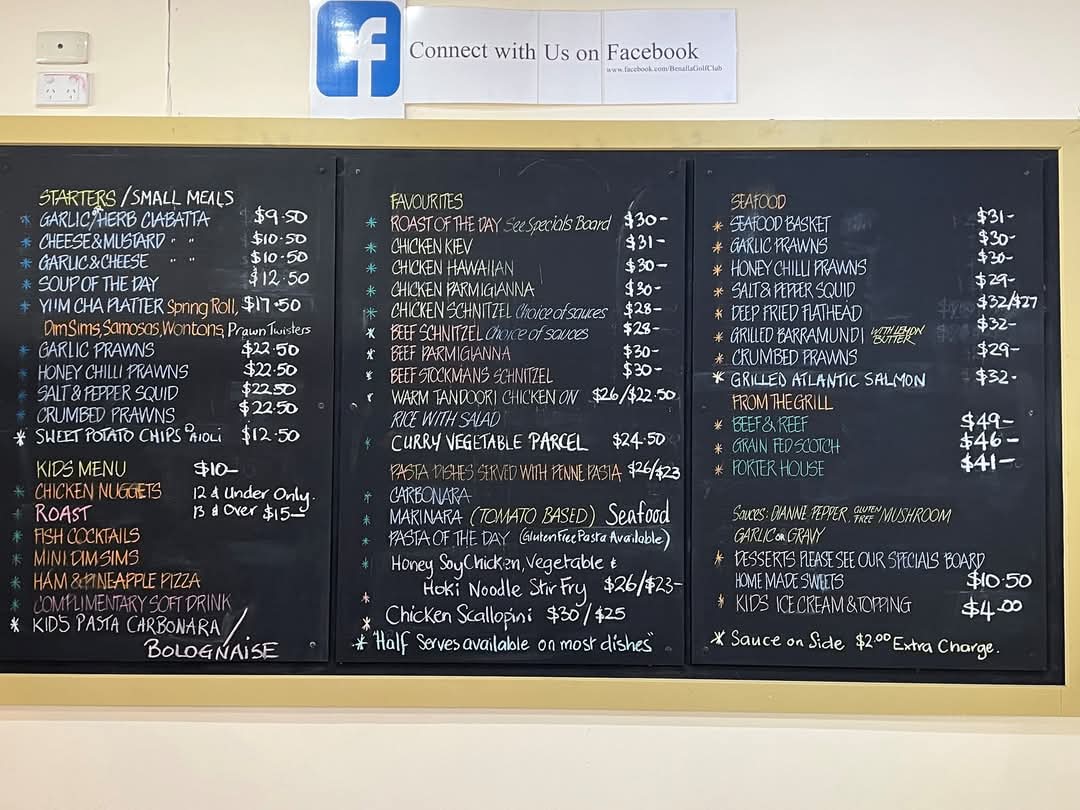 f
Connect with Us on Facebook
www.facebook.com/BenallaGolfClub
STARTERS / SMALL MEALS
* GARLIC/HERB CIABATTA $9.50
* CHEESE & MUSTARD " " $10.50
* GARLIC & CHEESE " " $10.50
* SOUP OF THE DAY $12.50
* YUM CHA PLATTER Spring Roll, $17.50
Dim Sims, Samosas, Wontons, Prawn Twisters
* GARLIC PRAWNS $22.50
* HONEY CHILLI PRAWNS $22.50
* SALT & PEPPER SQUID $22.50
* CRUMBED PRAWNS $22.50
* SWEET POTATO CHIPS AIOLI $12.50
KIDS MENU $10-
* CHICKEN NUGGETS 12 & Under Only.
* ROAST 13 & Over $15-
* FISH COCKTAILS
* MINI DIM SIMS
* HAM & PINEAPPLE PIZZA
* COMPLIMENTARY SOFT DRINK
* KIDS PASTA CARBONARA /
BOLOGNAISE
FAVOURITES
* ROAST OF THE DAY See Specials Board $30-
* CHICKEN KIEV $31-
* CHICKEN HAWAIIAN $30-
* CHICKEN PARMIGIANNA $30-
* CHICKEN SCHNITZEL Choice of sauces $28-
* BEEF SCHNITZEL Choice of sauces $28-
* BEEF PARMIGIANNA $30-
* BEEF STOCKMANS SCHNITZEL $30-
* WARM TANDOORI CHICKEN ON $26/$22.50
RICE WITH SALAD
* CURRY VEGETABLE PARCEL $24.50
PASTA DISHES SERVED WITH PENNE PASTA $26/$23
* CARBONARA
* MARINARA (TOMATO BASED) Seafood
* PASTA OF THE DAY (Gluten Free Pasta Available)
* Honey Soy Chicken, Vegetable &
Hoki Noodle Stir Fry $26/$23-
* Chicken Scallopini $30/$25
* "Half Serves available on most dishes"
SEAFOOD
* SEAFOOD BASKET $31-
* GARLIC PRAWNS $30-
* HONEY CHILLI PRAWNS $30-
* SALT & PEPPER SQUID $29-
* DEEP FRIED FLATHEAD $32/$27
* GRILLED BARRAMUNDI WITH LEMON BUTTER $32-
* CRUMBED PRAWNS $29-
* GRILLED ATLANTIC SALMON $32-
FROM THE GRILL
* BEEF & REEF $49-
* GRAIN FED SCOTCH $46-
* PORTER HOUSE $41-
Sauces: DIANNE PEPPER, GLUTEN FREE MUSHROOM
GARLIC or GRAVY
* DESSERTS PLEASE SEE OUR SPECIALS BOARD
HOME MADE SWEETS $10.50
* KIDS ICE CREAM & TOPPING $4.00
* Sauce on Side $2.00 Extra Charge.